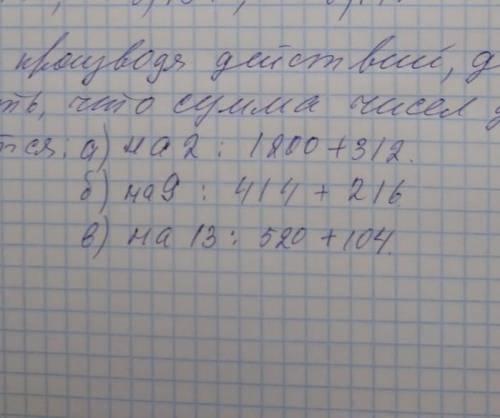 производя действий, д
ть, что сумма чисел
тся: а) на 2 : 1200+312.
б) на 9 : 414 + 216
в) на 13 : 520 + 104.